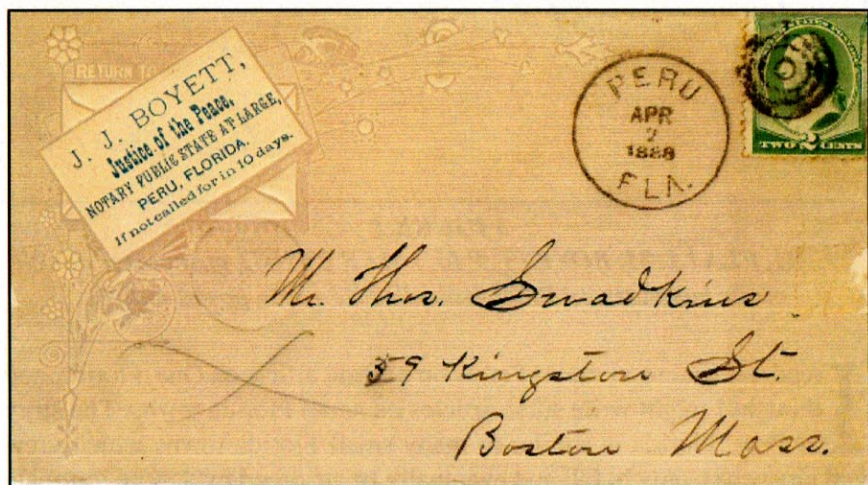 RETURN TO
J. J. BOYETT,
Justice of the Peace,
NOTARY PUBLIC STATE AT LARGE,
PERU, FLORIDA.
If not called for in 10 days.
PERU
APR
2
1888
FLA.
TWO 2 CENTS
Mr. Thos. Swadkins
59 Kingston St.
Boston Mass.